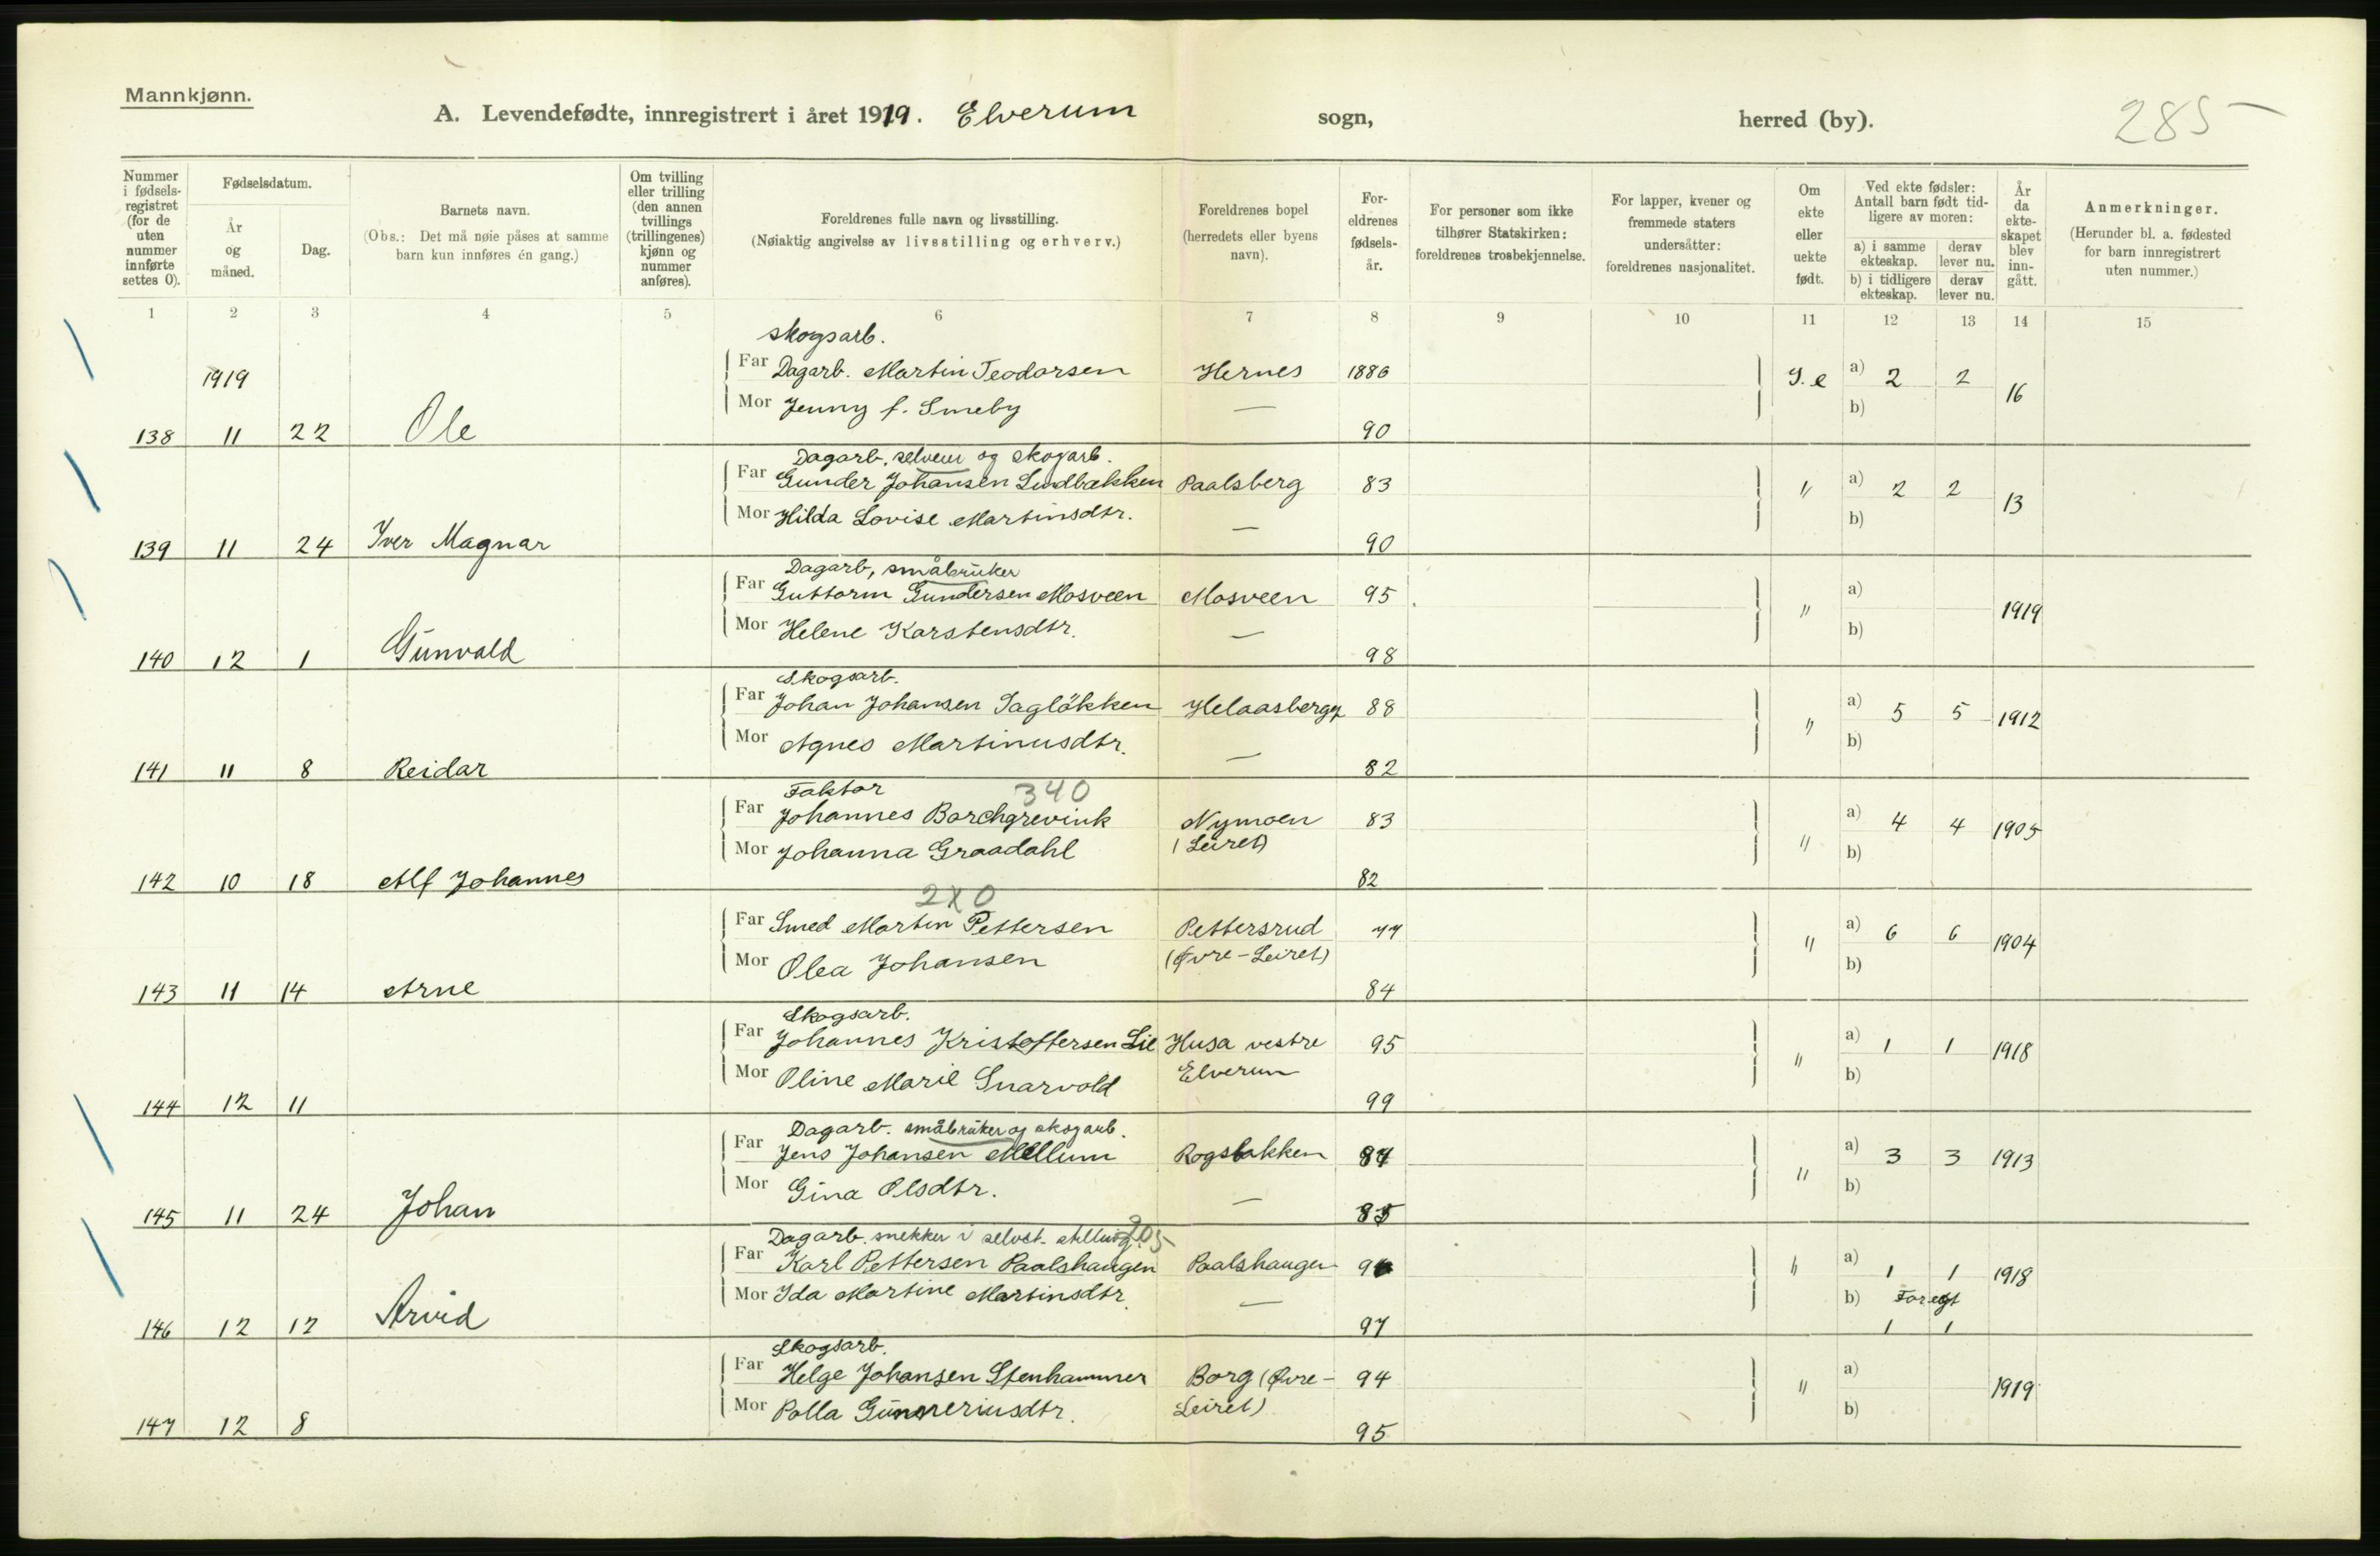 Mannkjønn.
A. Levendefødte, innregistrert i året 1919. Elverum sogn, herred (by). 285
Nummer i fødselsregistret (for de uten nummer innførte settes 0).
Fødselsdatum.
År og måned.
Dag.
Barnets navn.
(Obs.: Det må nøie påses at samme barn kun innføres én gang.)
Om tvilling eller trilling (den annen tvillings (trillingenes) kjønn og nummer anføres).
Foreldrenes fulle navn og livsstilling.
(Nøiaktig angivelse av livsstilling og erhverv.)
Foreldrenes bopel (herredets eller byens navn).
Foreldrenes fødselsår.
For personer som ikke tilhører Statskirken: foreldrenes trosbekjennelse.
For lapper, kvener og fremmede staters undersåtter: foreldrenes nasjonalitet.
Om ekte eller uekte født.
Ved ekte fødsler: Antall barn født tidligere av moren:
a) i samme ekteskap. derav lever nu.
b) i tidligere ekteskap. derav lever nu.
År da ekteskapet blev inngått.
Anmerkninger.
(Herunder bl. a. fødested for barn innregistrert uten nummer.)
1 2 3 4 5 6 7 8 9 10 11 12 13 14 15
skogsarb.
1919 Far Dagarb. Martin Teodorsen Hernes 1886 e a) 2 2 16
Mor Jenny f. Smeby — b)
138 11 22 Ole 90
Dagarb, selveier og skogarb.
Far Gunder Johansen Lindbækken Paalsberg 83 " a) 2 2 13
Mor Hilda Lovise Martinsdtr. — b)
139 11 24 Iver Magnar 90
Dagarb, småbruker
Far Guttorm Gundersen Mosveen Mosveen 95 " a) 1919
Mor Helene Karstensdtr. — b)
140 12 1 Gunvald 98
Skogsarb.
Far Johan Johansen Sagløkken 88 " a) 5 5 1912
Mor Agnes Martinusdtr. — b)
141 11 8 Reidar 82
Faktor 340
Far Johannes Borchgrevink Nymoen 83 " a) 4 4 1905
Mor Johanna Graadahl (Leiret) b)
142 10 18 Alf Johannes 82
2x0
Far Smed Martin Pettersen Pettersrud 77 " a) 6 6 1904
Mor Olea Johansen (Øvre-Leiret) b)
143 11 14 Arne 84
Skogsarb.
Far Johannes Kristoffersen Lie Husa vestre 95 " a) 1 1 1918
Mor Oline Marie Snarvold Elverum b)
144 12 11 99
Dagarb. småbruker og skogarb.
Far Jens Johansen Mellum Rogstakken 84 " a) 3 3 1913
Mor Gina Olsdtr. — b)
145 11 24 Johan 85
Dagarb. snekker i selvst. stilling. 205
Far Karl Pettersen Paalshaugen Paalshaugen " a) 1 1 1918
Mor Ida Martine Martinsdtr. — b) For egt
146 12 12 Arvid 97 1 1
Skogsarb.
Far Helge Johansen Stenhammer Borg (Øvre- 94 " a) 1919
Mor Palla Gunneriusdtr. Leiret) b)
147 12 8 95